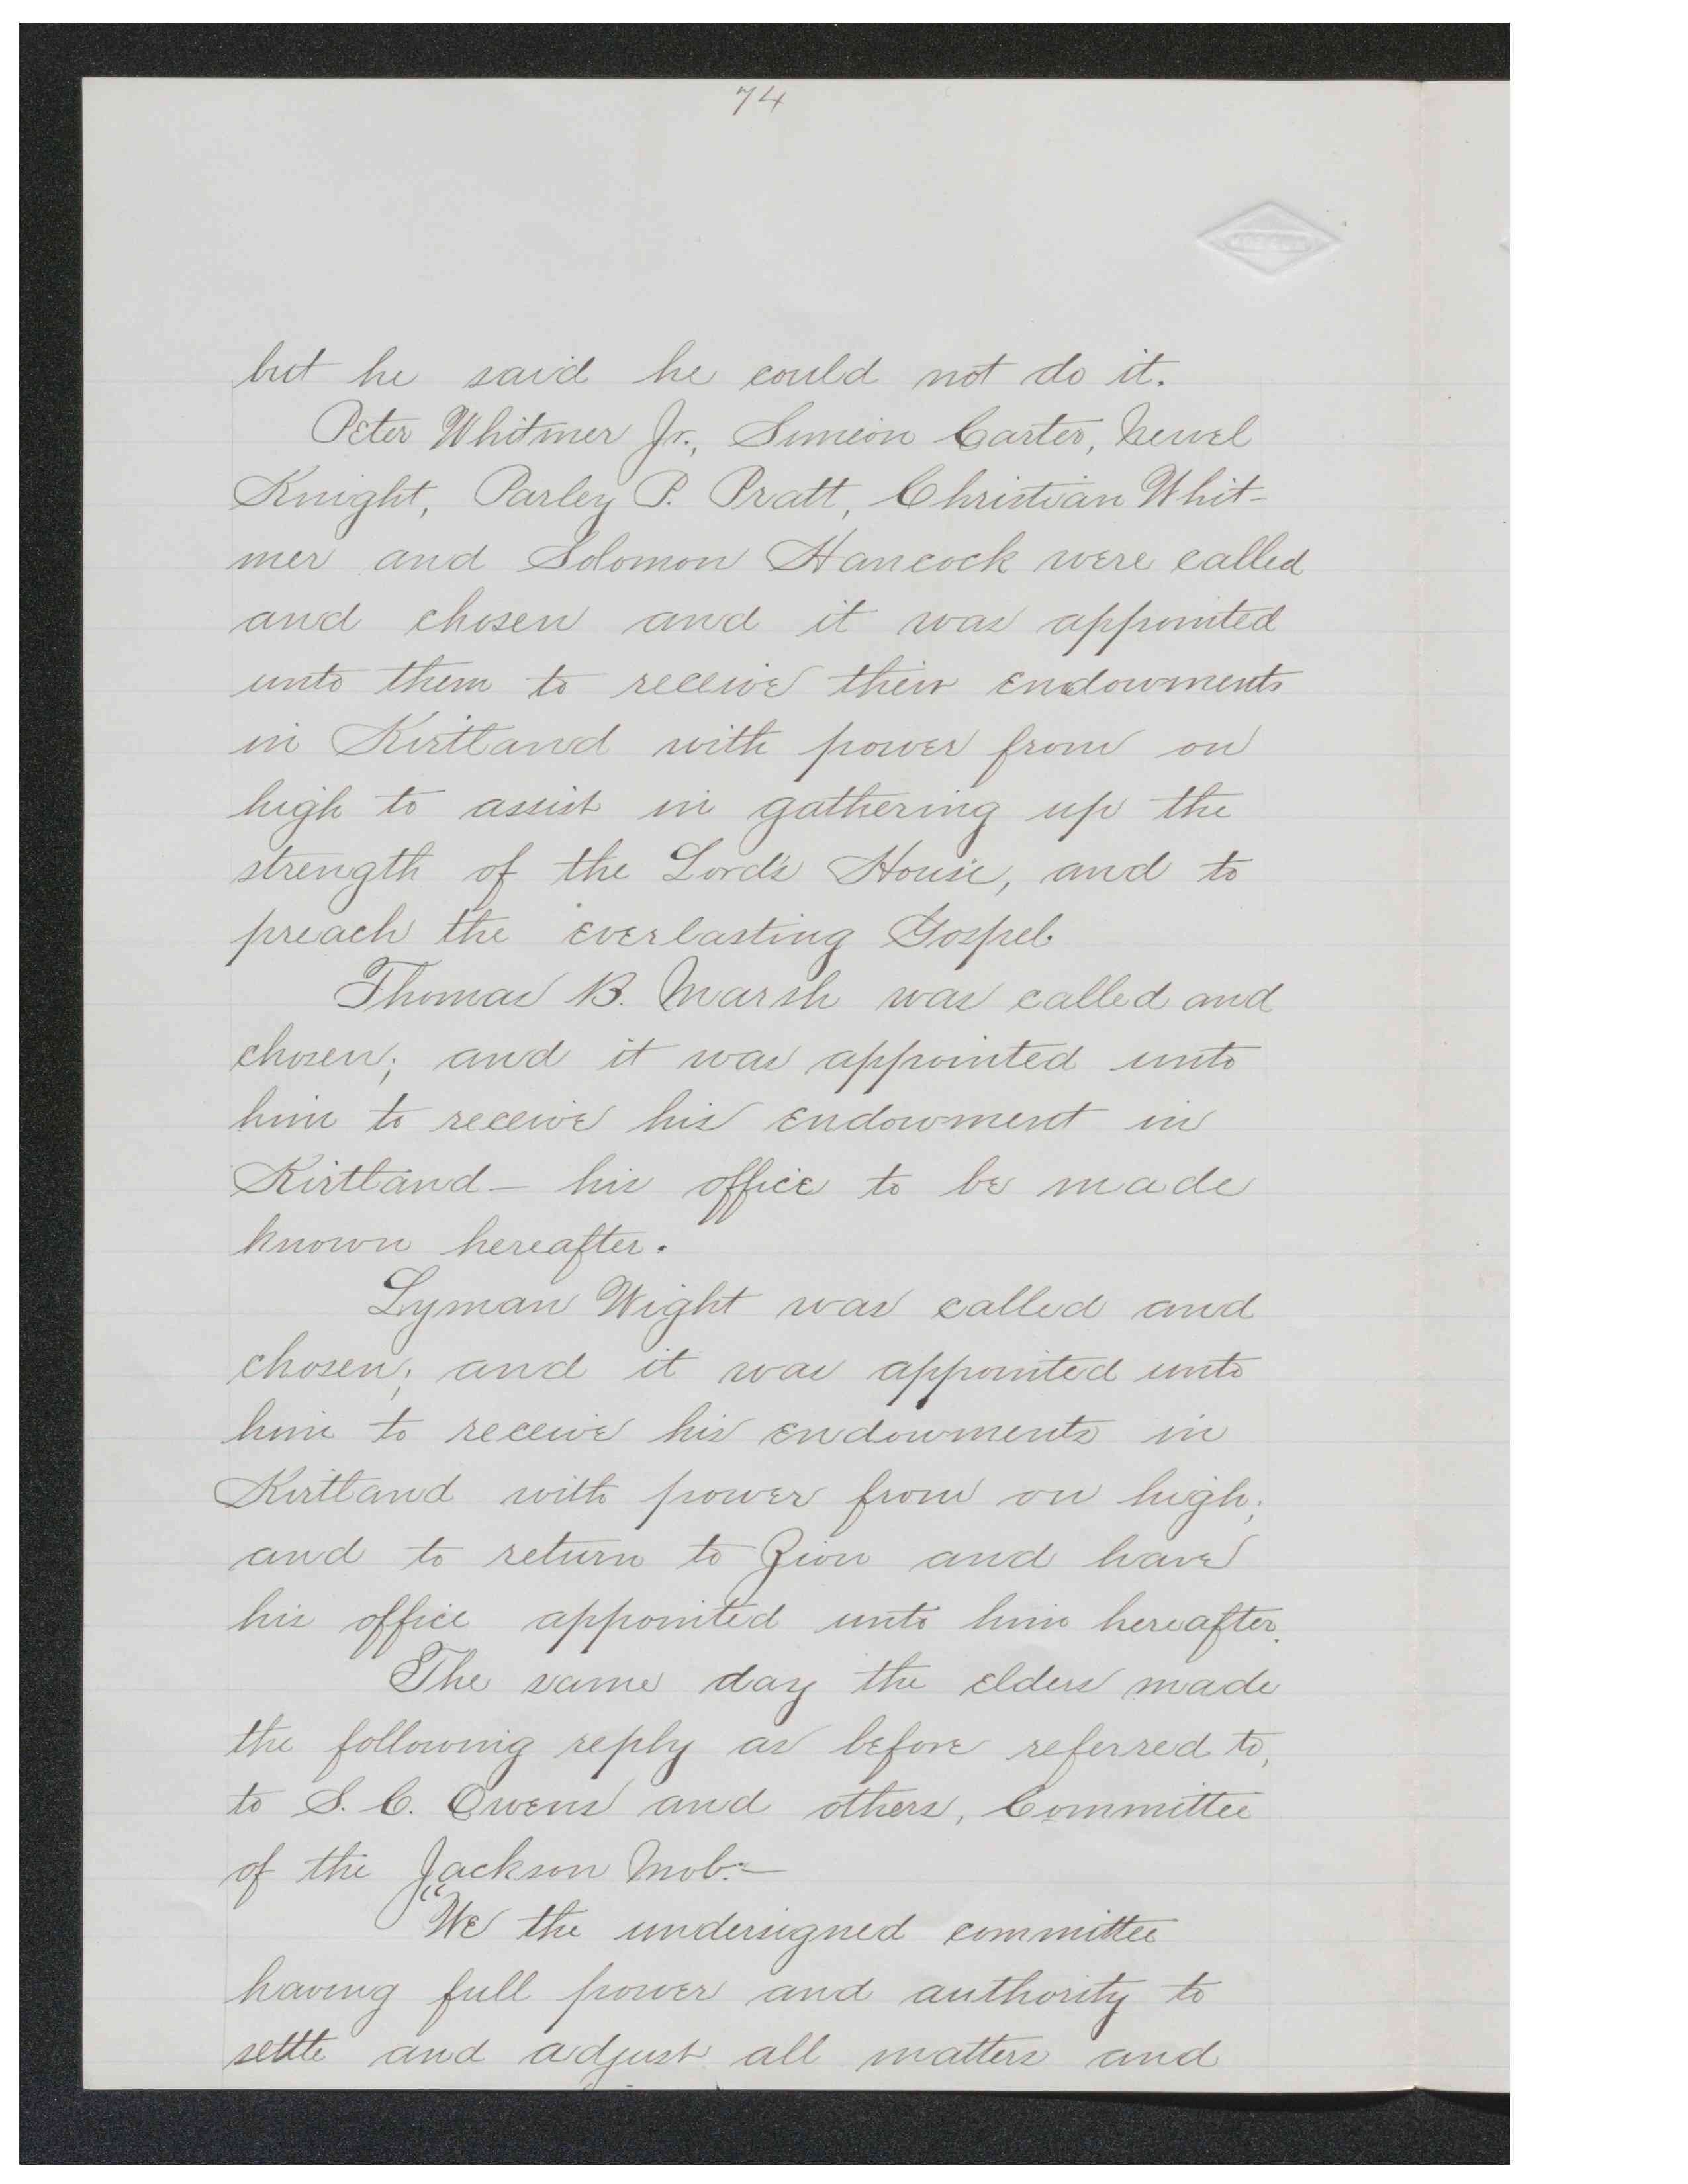 74
but he said he could not do it.
Peter Whitmer Jr., Simeon Carter, Newel
Knight, Parley P. Pratt, Christian Whit-
mer and Solomon Hancock were called
and chosen and it was appointed
unto them to receive their endowments
in Kirtland with power from on
high to assist in gathering up the
strength of the Lord's House, and to
preach the everlasting Gospel.
Thomas B. Marsh was called and
chosen; and it was appointed unto
him to receive his endowment in
Kirtland – his office to be made
known hereafter.
Lyman Wight was called and
chosen; and it was appointed unto
him to receive his endowments in
Kirtland with power from on high;
and to return to Zion and have
his office appointed unto him hereafter.
The same day the elders made
the following reply as before referred to,
to S. C. Owens and others, Committee
of the Jackson Mob:–
"We the undersigned committee
having full power and authority to
settle and adjust all matters and